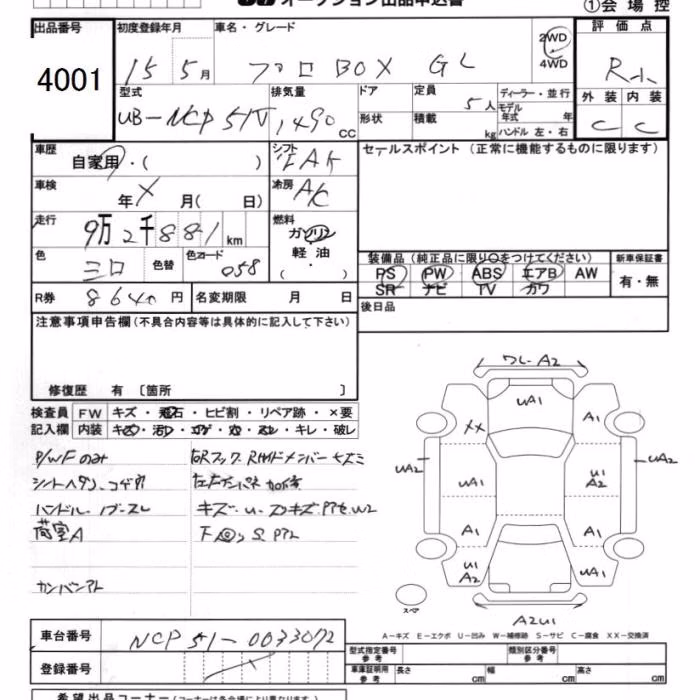 オークション出品申込書
①会場控
出品番号 初度登録年月 車名・グレード 評価点
4001 15 5月 プロBOX GL 2WD 4WD R小
型式 排気量 ドア 定員 5人 ディーラー・並行 外装 内装
UB-NCP51V 1490cc 形状 積載 kg モデル年式 年 ハンドル 左・右 C C
車歴 自家用・( ) シフト FAK セールスポイント(正常に機能するものに限ります)
車検 年 X 月( 日) 冷房 AC
走行 9万2千881km 燃料 ガソリン 軽油 ( ・ )
色 シロ 色替 色コード 058 装備品(純正品に限り○をつけてください) 新車保証書
PS PW ABS エアB AW 有・無
SR ナビ TV カワ
R券 8640円 名変期限 月 日 後日品
注意事項申告欄(不具合内容等は具体的に記入して下さい)
修復歴 有 〔箇所 〕
検査員 FW キズ・飛石・ヒビ割・リペア跡・×要
記入欄 内装 キレ・破レ
P/WFのみ
荷室A
カンバンアト
ワレ・A2
UA1
XX A1
UA2 UA1 U1 A2 UA2
A1 A1
U1 A2 UA1
スペア
A2U1
A-キズ E-エクボ U-凹み W-補修跡 S-サビ C-腐食 XX-交換済
車台番号 NCP51-0033072 型式指定番号 参考 類別区分番号 参考
登録番号 車庫証明用 参考 長さ cm 幅 cm 高さ cm
希望出品コーナー